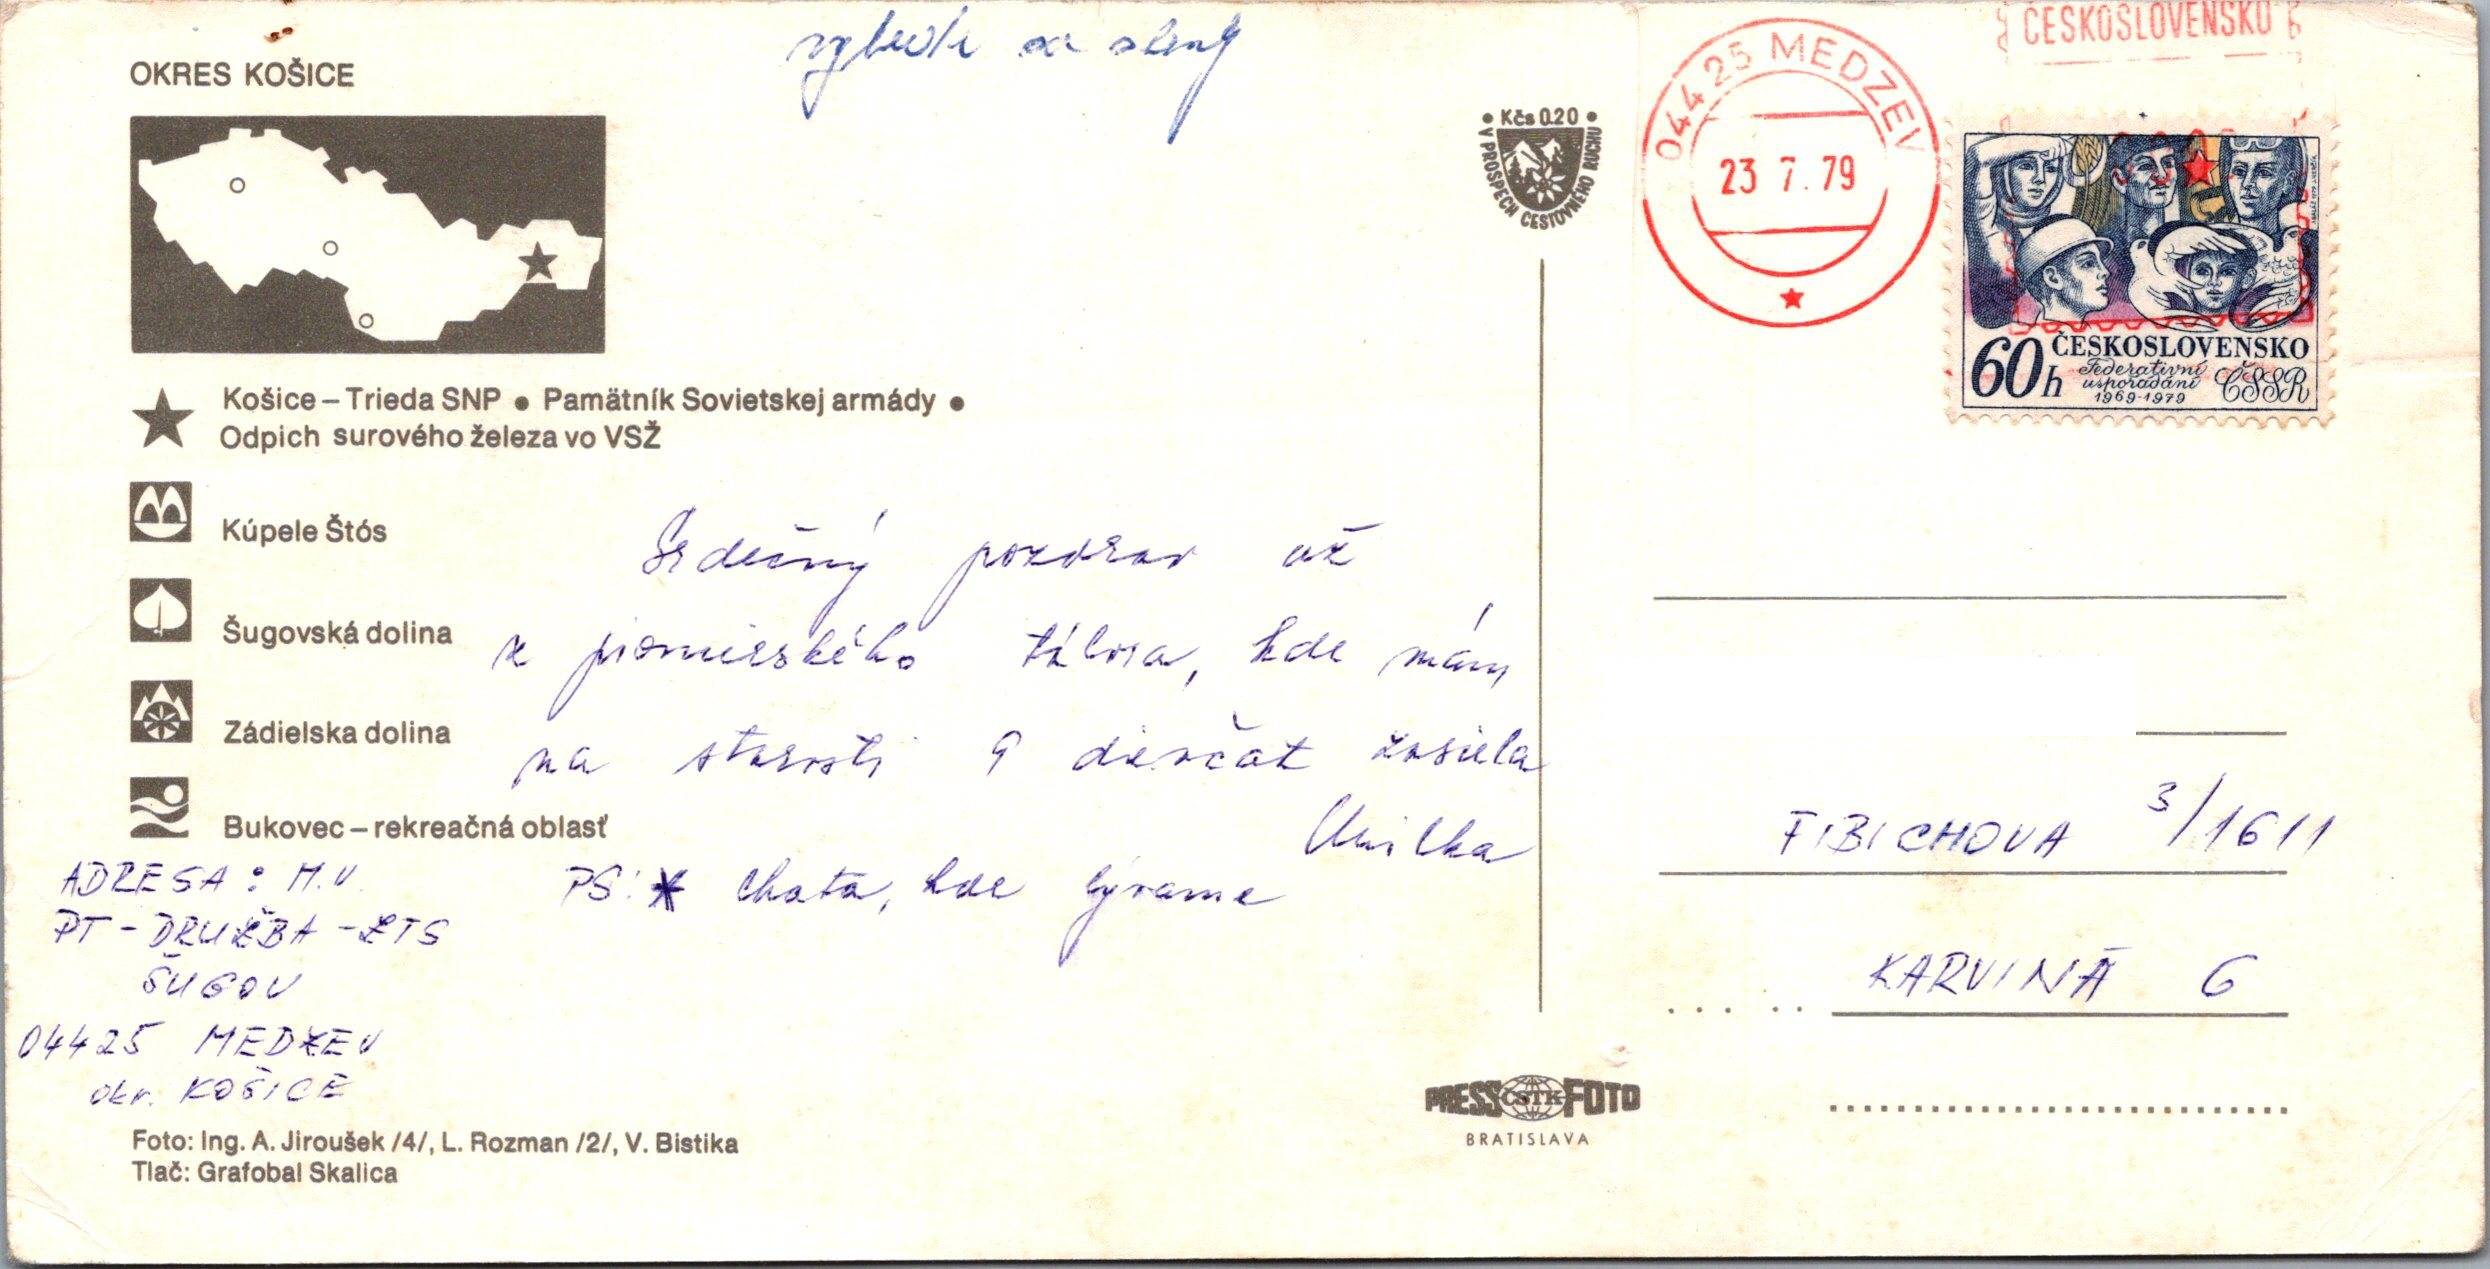 OKRES KOŠICE
• Kčs 0.20 •
V PROSPECH CESTOVNÉHO RUCHU
044 25 MEDZEV
23 7. 79
ČESKOSLOVENSKO
60h ČESKOSLOVENSKO
Federativní
uspořádání
1969-1979
ČSSR
Košice – Trieda SNP • Pamätník Sovietskej armády •
Odpich surového železa vo VSŽ
Kúpele Štós
Šugovská dolina
Zádielska dolina
Bukovec – rekreačná oblasť
Srdečný pozdrav až
z pionierského tábora, kde mám
na starosti 9 dievčat zasiela
Milka
PS: * chata, kde bývame
ADRESA: M.V.
PT - DRUŽBA - ZTS
ŠUGOV
04425 MEDZEV
okr. KOŠICE
FIBICHOVA 3/1611
KARVINÁ 6
PRESS ČSTK FOTO
BRATISLAVA
Foto: Ing. A. Jiroušek /4/, L. Rozman /2/, V. Bistika
Tlač: Grafobal Skalica